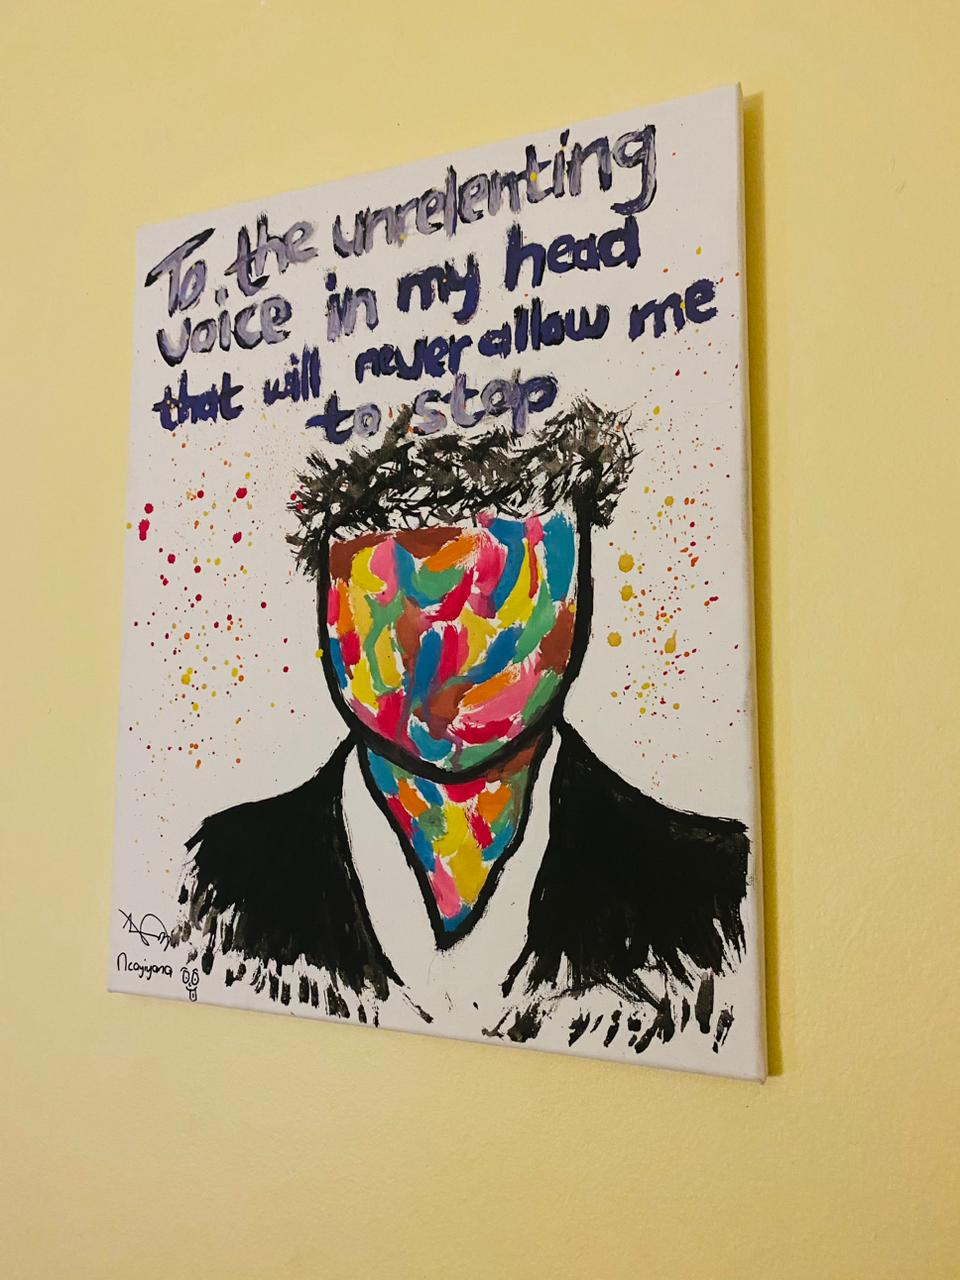 To the unrelenting
voice in my head
that will never allow me
to stop
Ncayiyana